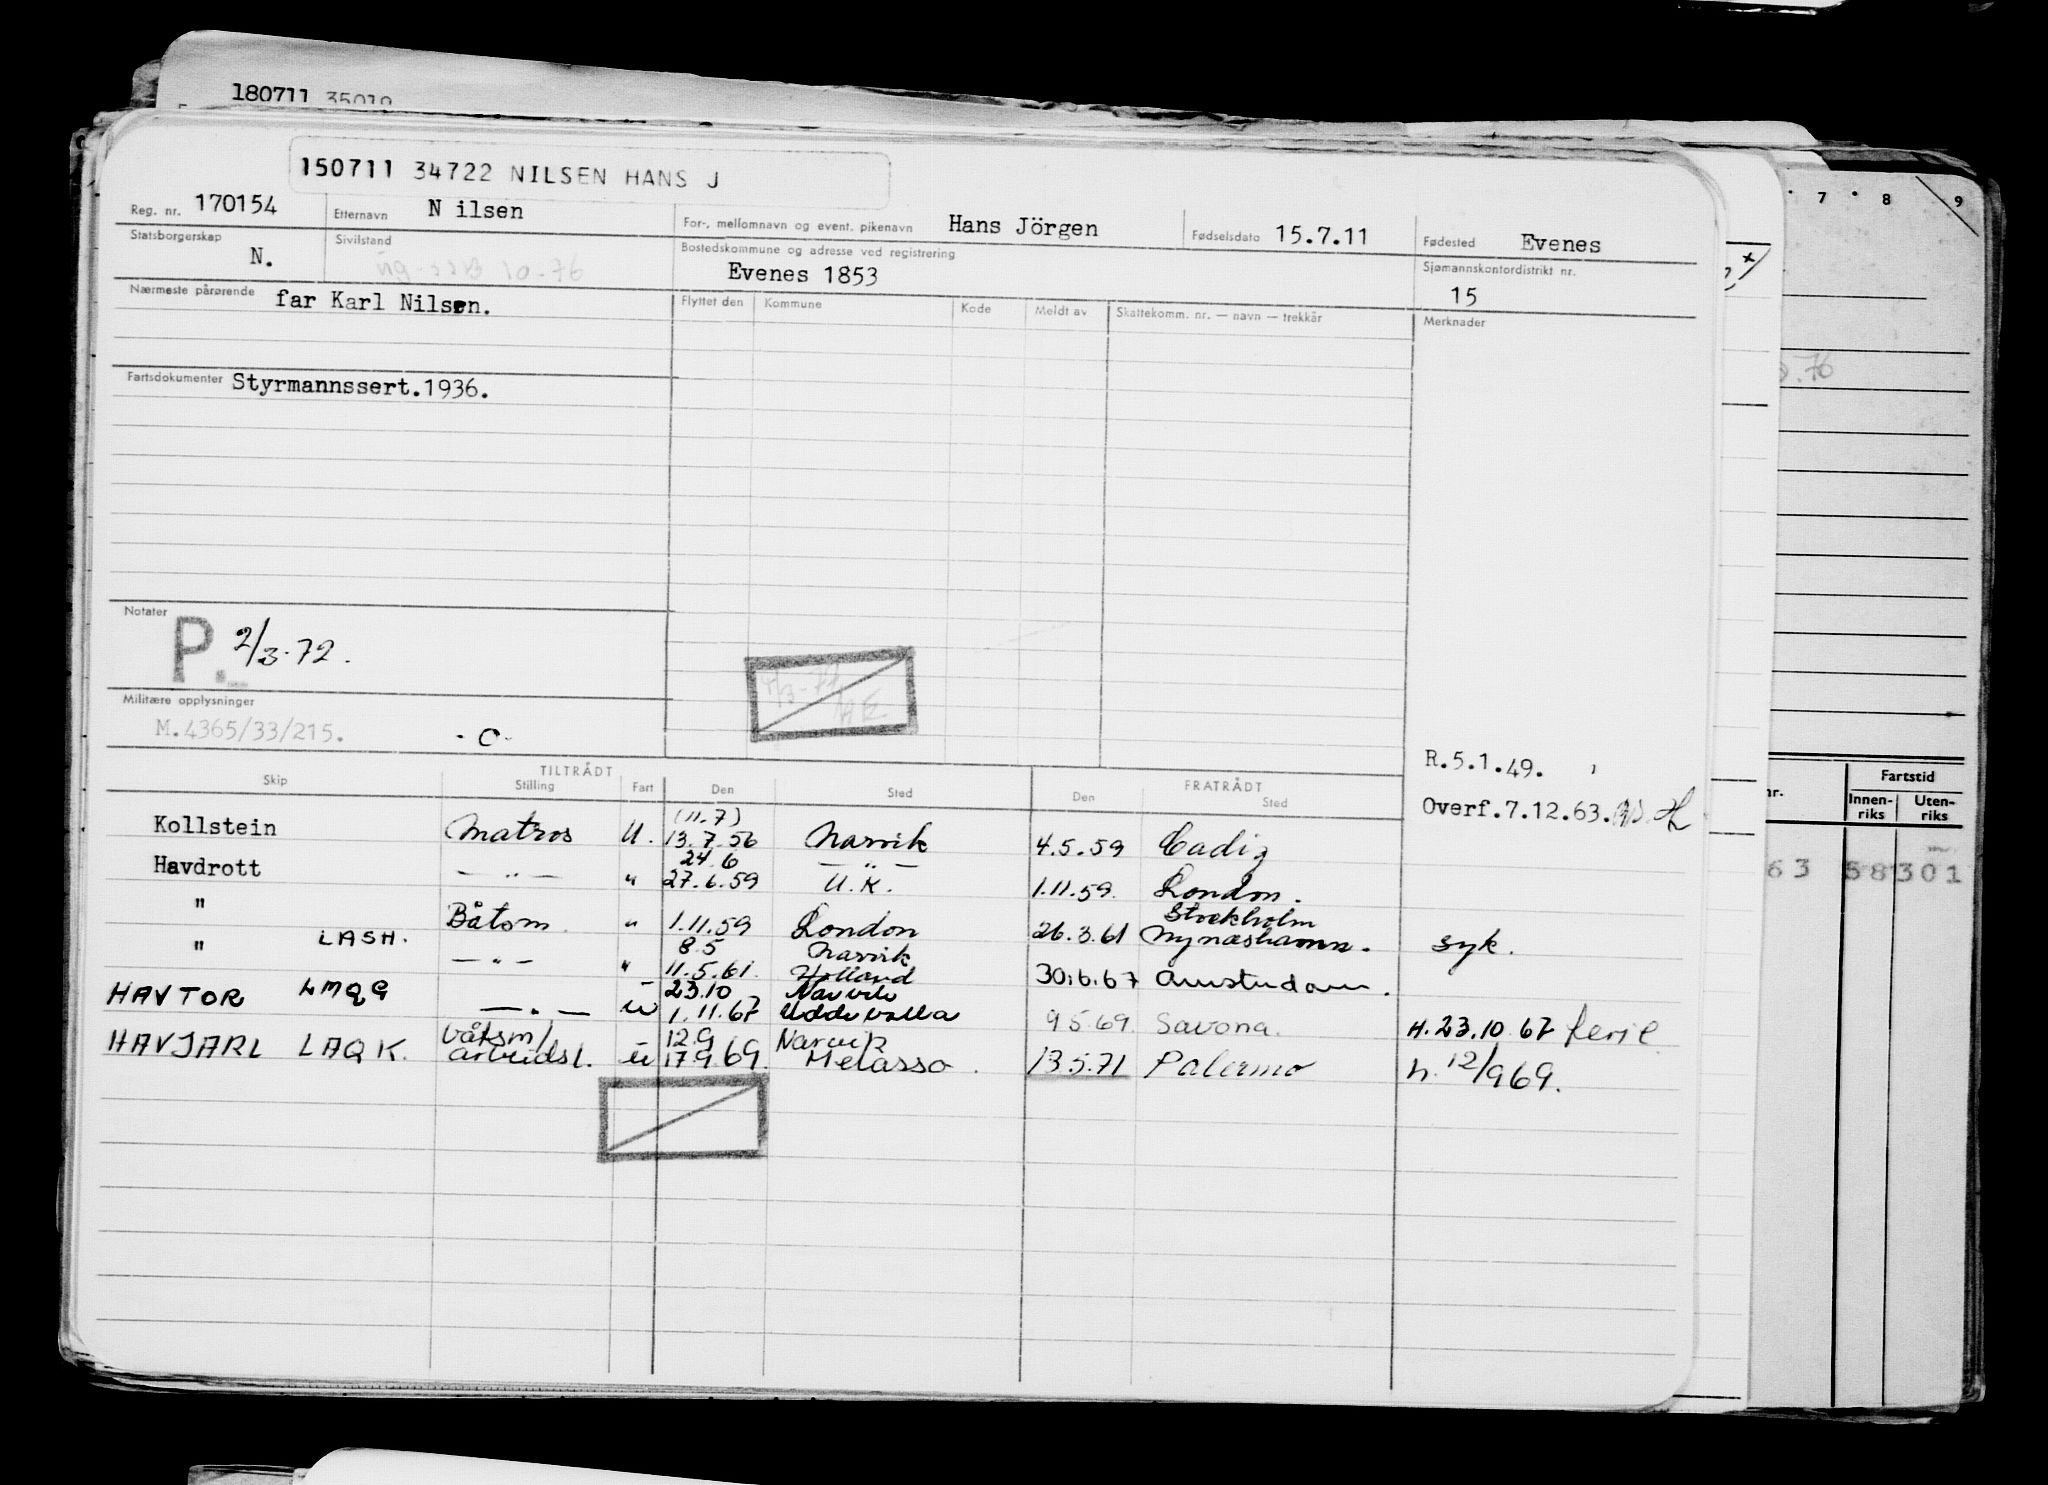 180711 35019
150711 34722 NILSEN HANS J
Reg. nr. 170154 Etternavn N ilsen For-, mellomnavn og event. pikenavn Hans Jörgen Fødselsdato 15.7.11 Fødested Evenes
Statsborgerskap N. Sivilstand Bostedskommune og adresse ved registrering Evenes 1853 Sjømannskontordistrikt nr. 15
Nærmeste pårørende far Karl Nilsen. Flyttet den Kommune Kode Meldt av Skattekomm. nr. — navn — trekkår Merknader
Fartsdokumenter Styrmannssert.1936.
Notater P. 2/3-72.
Militære opplysninger
M.4365/33/215. -C-
R.5.1.49.
Overf.7.12.63.
TILTRÅDT FRATRÅDT
Skip Stilling Fart Den Sted Den Sted
(11.7)
Kollstein Matros U. 13.7.56 Narvik 4.5.59 Cadiz
24.6 — " —
Havdrott — " — " 27.6.59 U.K. 1.11.59. London.
Stockholm
" Båtsm. " 1.11.59 London 26.3.61 Nynæshamn. syk.
8.5 Narvik
" LASH. — " — " 11.5.61. Holland 30.6.67 Amsterdam.
23.10 Narvik
HAVTOR LMQG — " — u 1.11.67 Uddevalla 9 5.69. Savona. H. 23.10.67 ferie
12.9 Narvik
HAVJARL LAQK. båtsm/ arbeidsl. u 17.9.69. Melasso. 13.5.71 Palermo h. 12/969.
7 8 9
nr. Fartstid
Innen-riks Uten-riks
63 58301